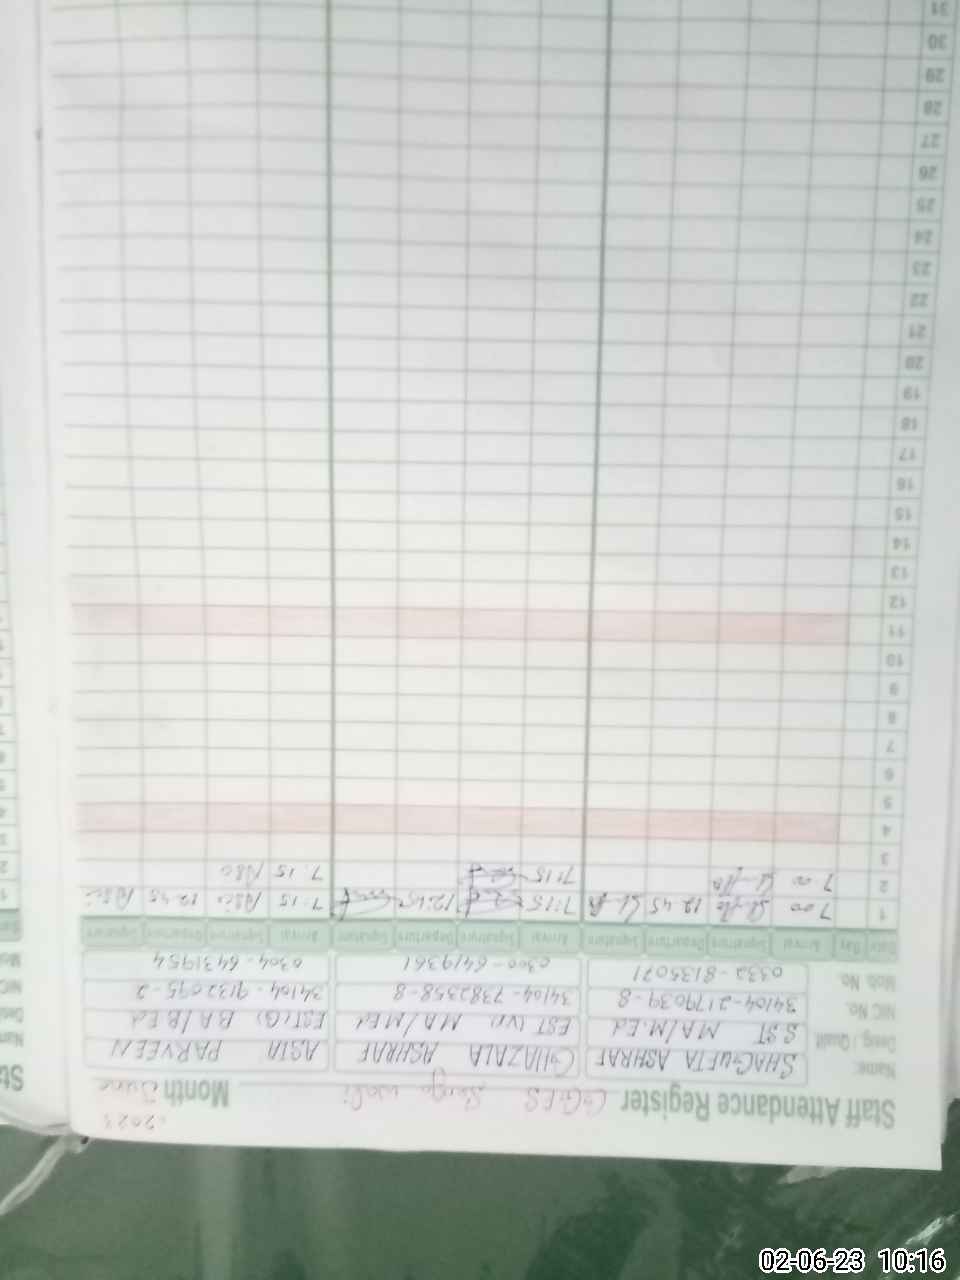 2023
Staff Attendance Register GGES Month June
Name: SHAGUFTA ASHRAF GHAZALA ASHRAF ASIA PARVEEN
Desig / Qualif SST MA/M.Ed EST MA/M.Ed EST(G) BA/B.Ed
NIC No. 34104-2179039-8 34104-7382358-8 34104-9132095-2
Mob No. 0332-8135071 0300-6419361 0304-6431954
Date Day Arrival Signature Departure Signature Arrival Signature Departure Signature Arrival Signature Departure Signature
1 7:00 12:45 7:15 12:45 7:15 12:45
2 7:00 7:15 7:15
3
4
5
6
7
8
9
10
11
12
13
14
15
16
17
18
19
20
21
22
23
24
25
26
27
28
29
30
31
02-06-23 10:16